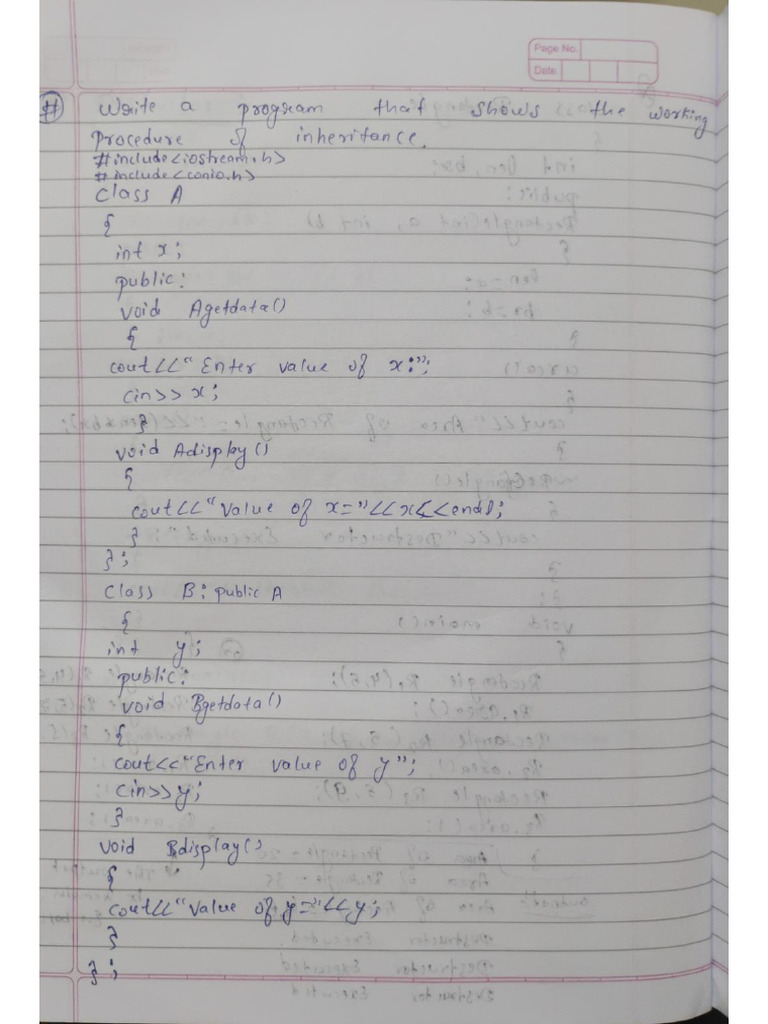 Page No.
Date:
# Write a program that shows the working
procedure of inheritance.
#include<iostream.h>
#include<conio.h>
class A
{
int x;
public:
void Agetdata()
{
cout<<"Enter value of x:";
cin>>x;
}
void Adisplay()
{
cout<<"Value of x="<<x<<endl;
}
};
class B: public A
{
int y;
public:
void Bgetdata()
{
cout<<"Enter value of y";
cin>>y;
}
void Bdisplay()
{
cout<<"Value of y="<<y;
}
};